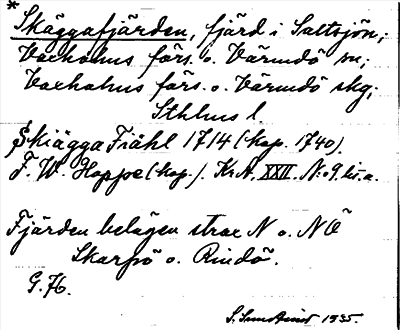 * Skäggafjärden, fjärd i Saltsjön;
Vaxholms förs. o. Värmdö sn;
Vaxholms förs. o. Värmdö skg;
Sthlms l.
Skiägga Fiähl 1714 (kop. 1740).
F. W. Hoppe (kop.). Kr.A. XXII. N:o 9. lit. a.
Fjärden belägen strax N o. NÖ
Skarpö o. Rindö.
G. H.
S. 1935.